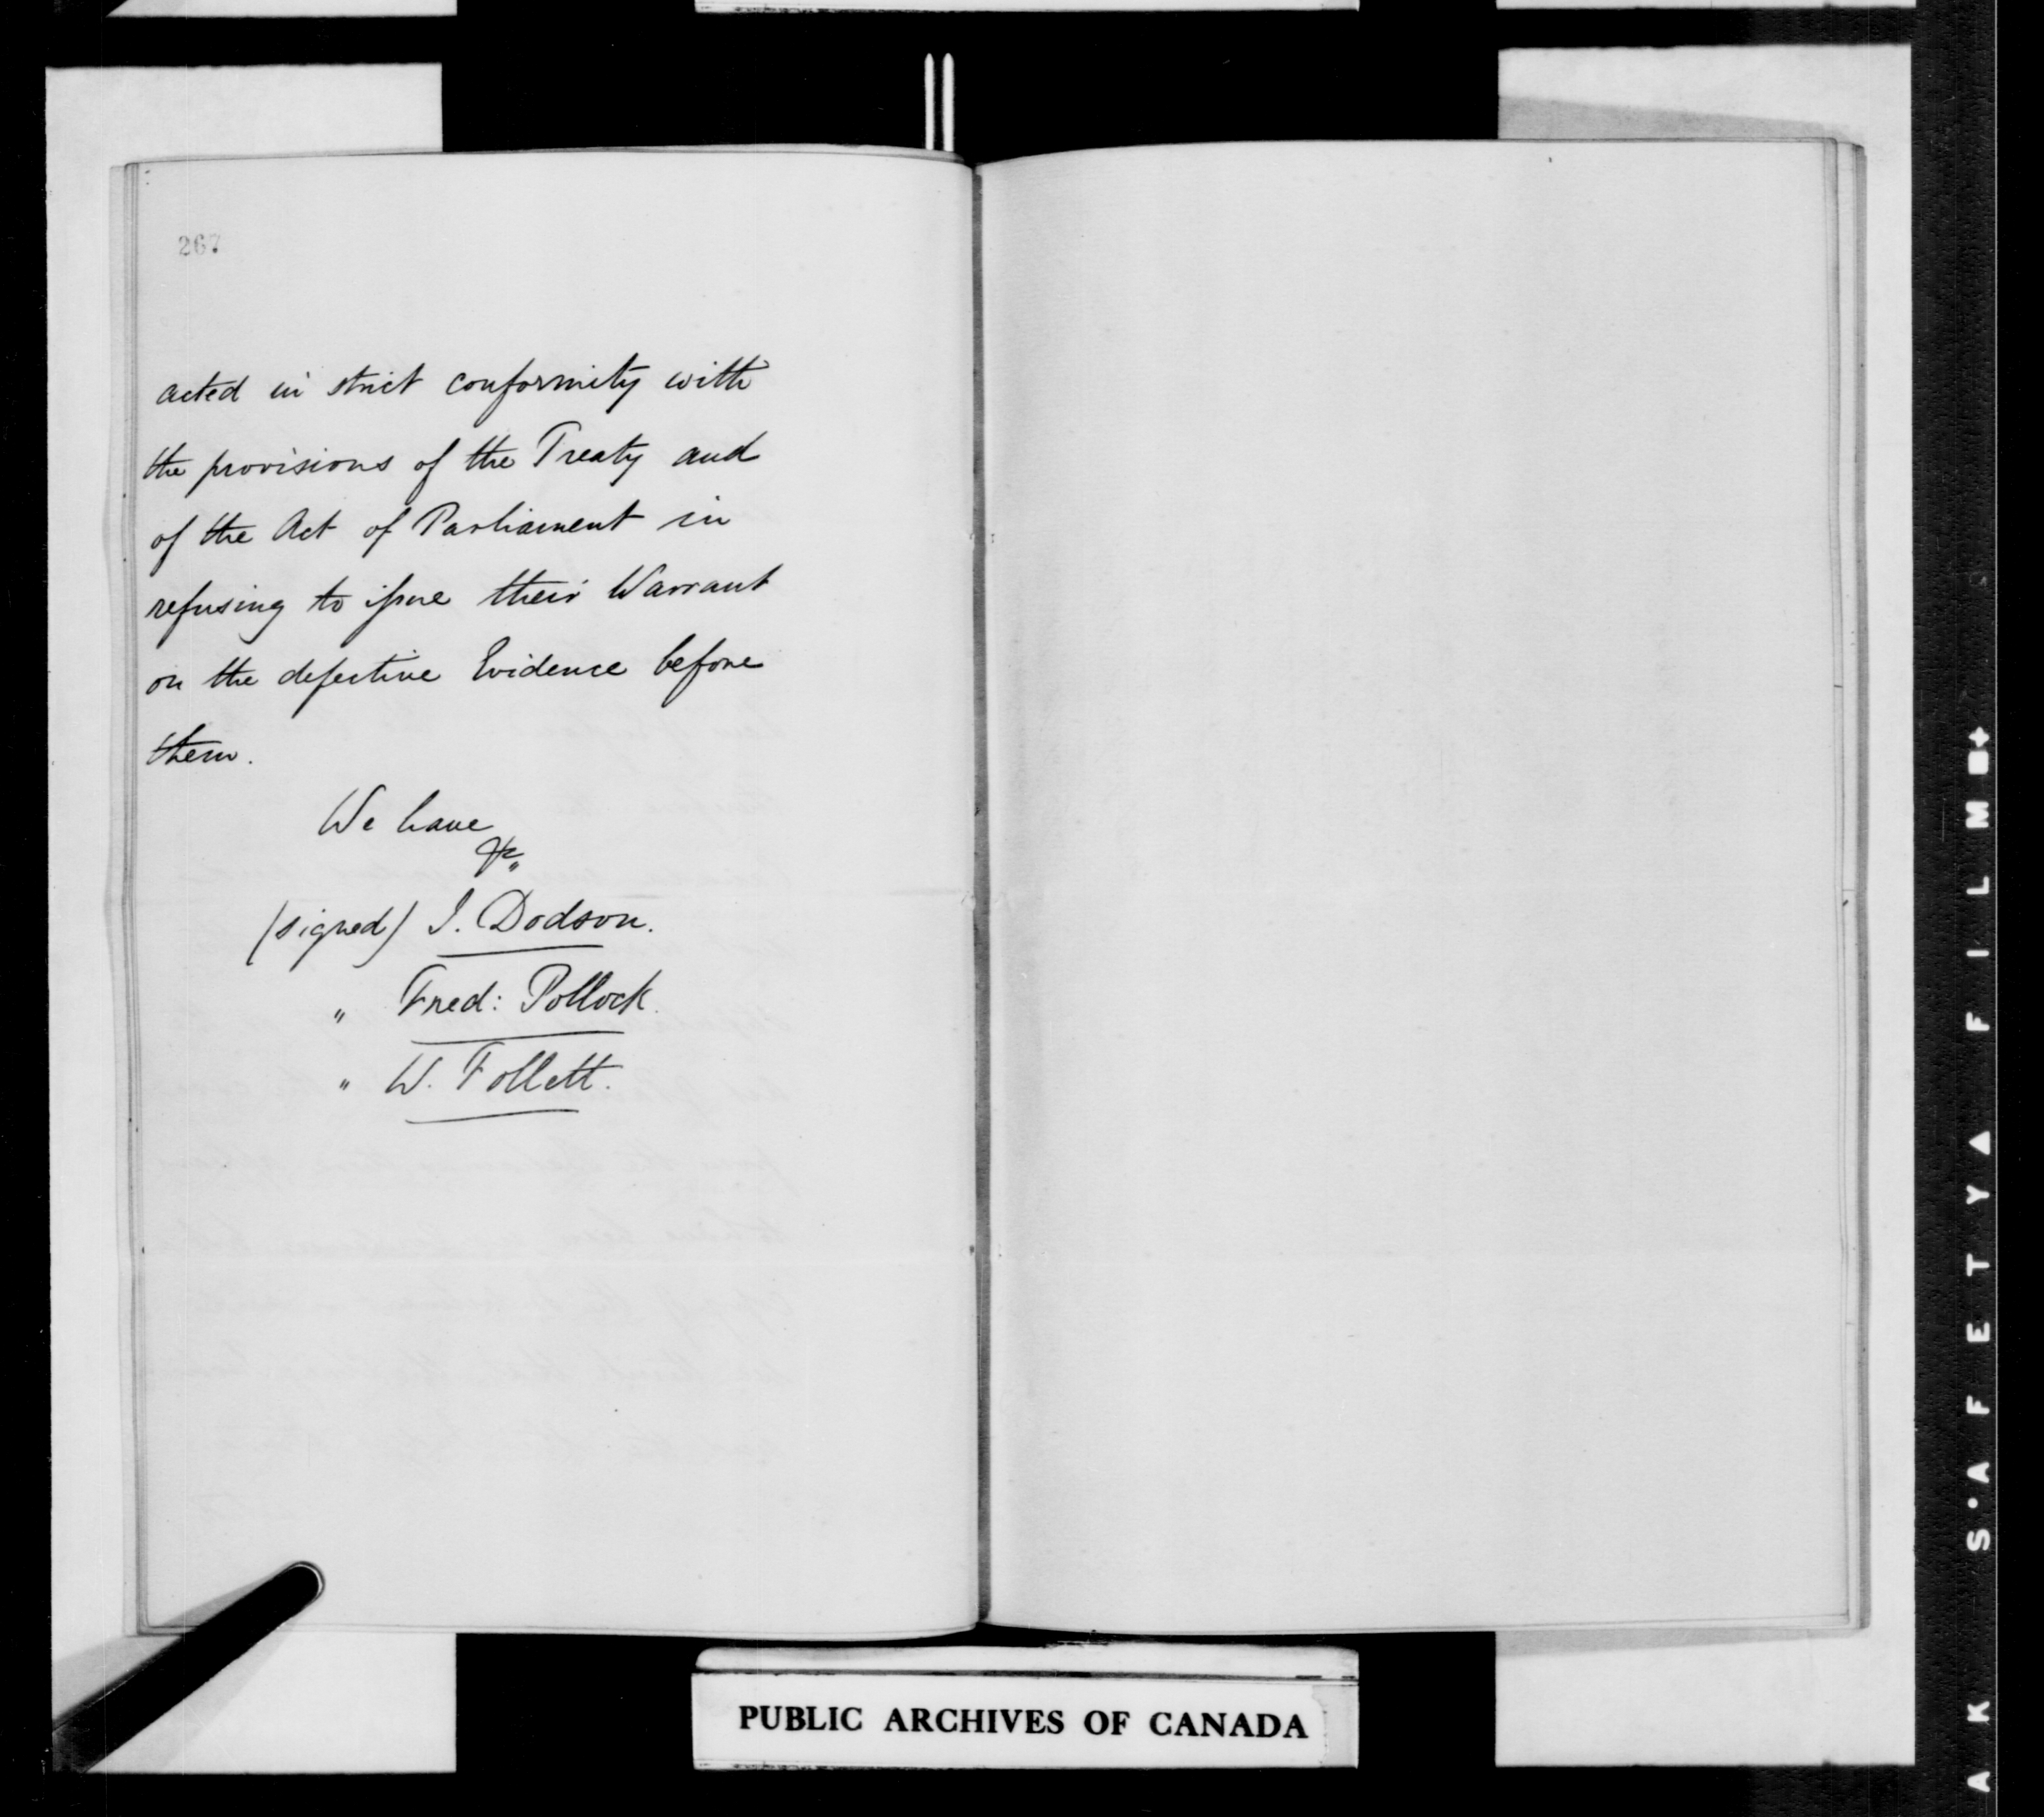 267
acted in strict conformity with
the provisions of the Treaty and
of the Act of Parliament in
refusing to issue their Warrant
on the defective Evidence before
them.
We have
&c
(signed) J. Dodson.
" Fred: Pollock.
" W. Follett.
PUBLIC ARCHIVES OF CANADA
A K S·A F E T Y ▲ F I L M